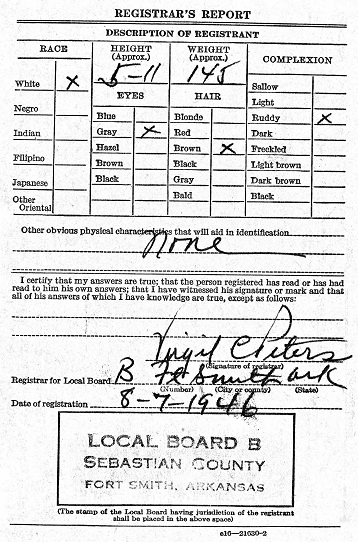 REGISTRAR'S REPORT
DESCRIPTION OF REGISTRANT
RACE HEIGHT (Approx.) WEIGHT (Approx.) COMPLEXION
5-11 145
White X
Negro
Indian
Filipino
Japanese
Other Oriental
EYES
Blue
Gray X
Hazel
Brown
Black
HAIR
Blonde
Red
Brown X
Black
Gray
Bald
Sallow
Light
Ruddy X
Dark
Freckled
Light brown
Dark brown
Black
Other obvious physical characteristics that will aid in identification
None
I certify that my answers are true; that the person registered has read or has had
read to him his own answers; that I have witnessed his signature or mark and that
all of his answers of which I have knowledge are true, except as follows:
Virgil C Peters
(Signature of registrar)
Registrar for Local Board B Ft Smith Ark
(Number) (City or county) (State)
Date of registration 8-7-1946
LOCAL BOARD B
SEBASTIAN COUNTY
FORT SMITH, ARKANSAS
(The stamp of the Local Board having jurisdiction of the registrant
shall be placed in the above space)
c16—21630-2